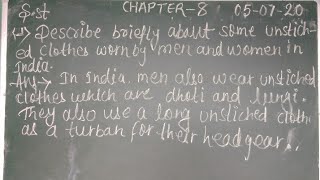 S.st CHAPTER-8 05-07-20
Describe briefly about some unstich
ed clothes worn by men and women in
India.
Ans→ In India, men also wear unstiched
clothes which are dholi and lungi.
They also use a long unstiched cloth
as a turban for their headgear.